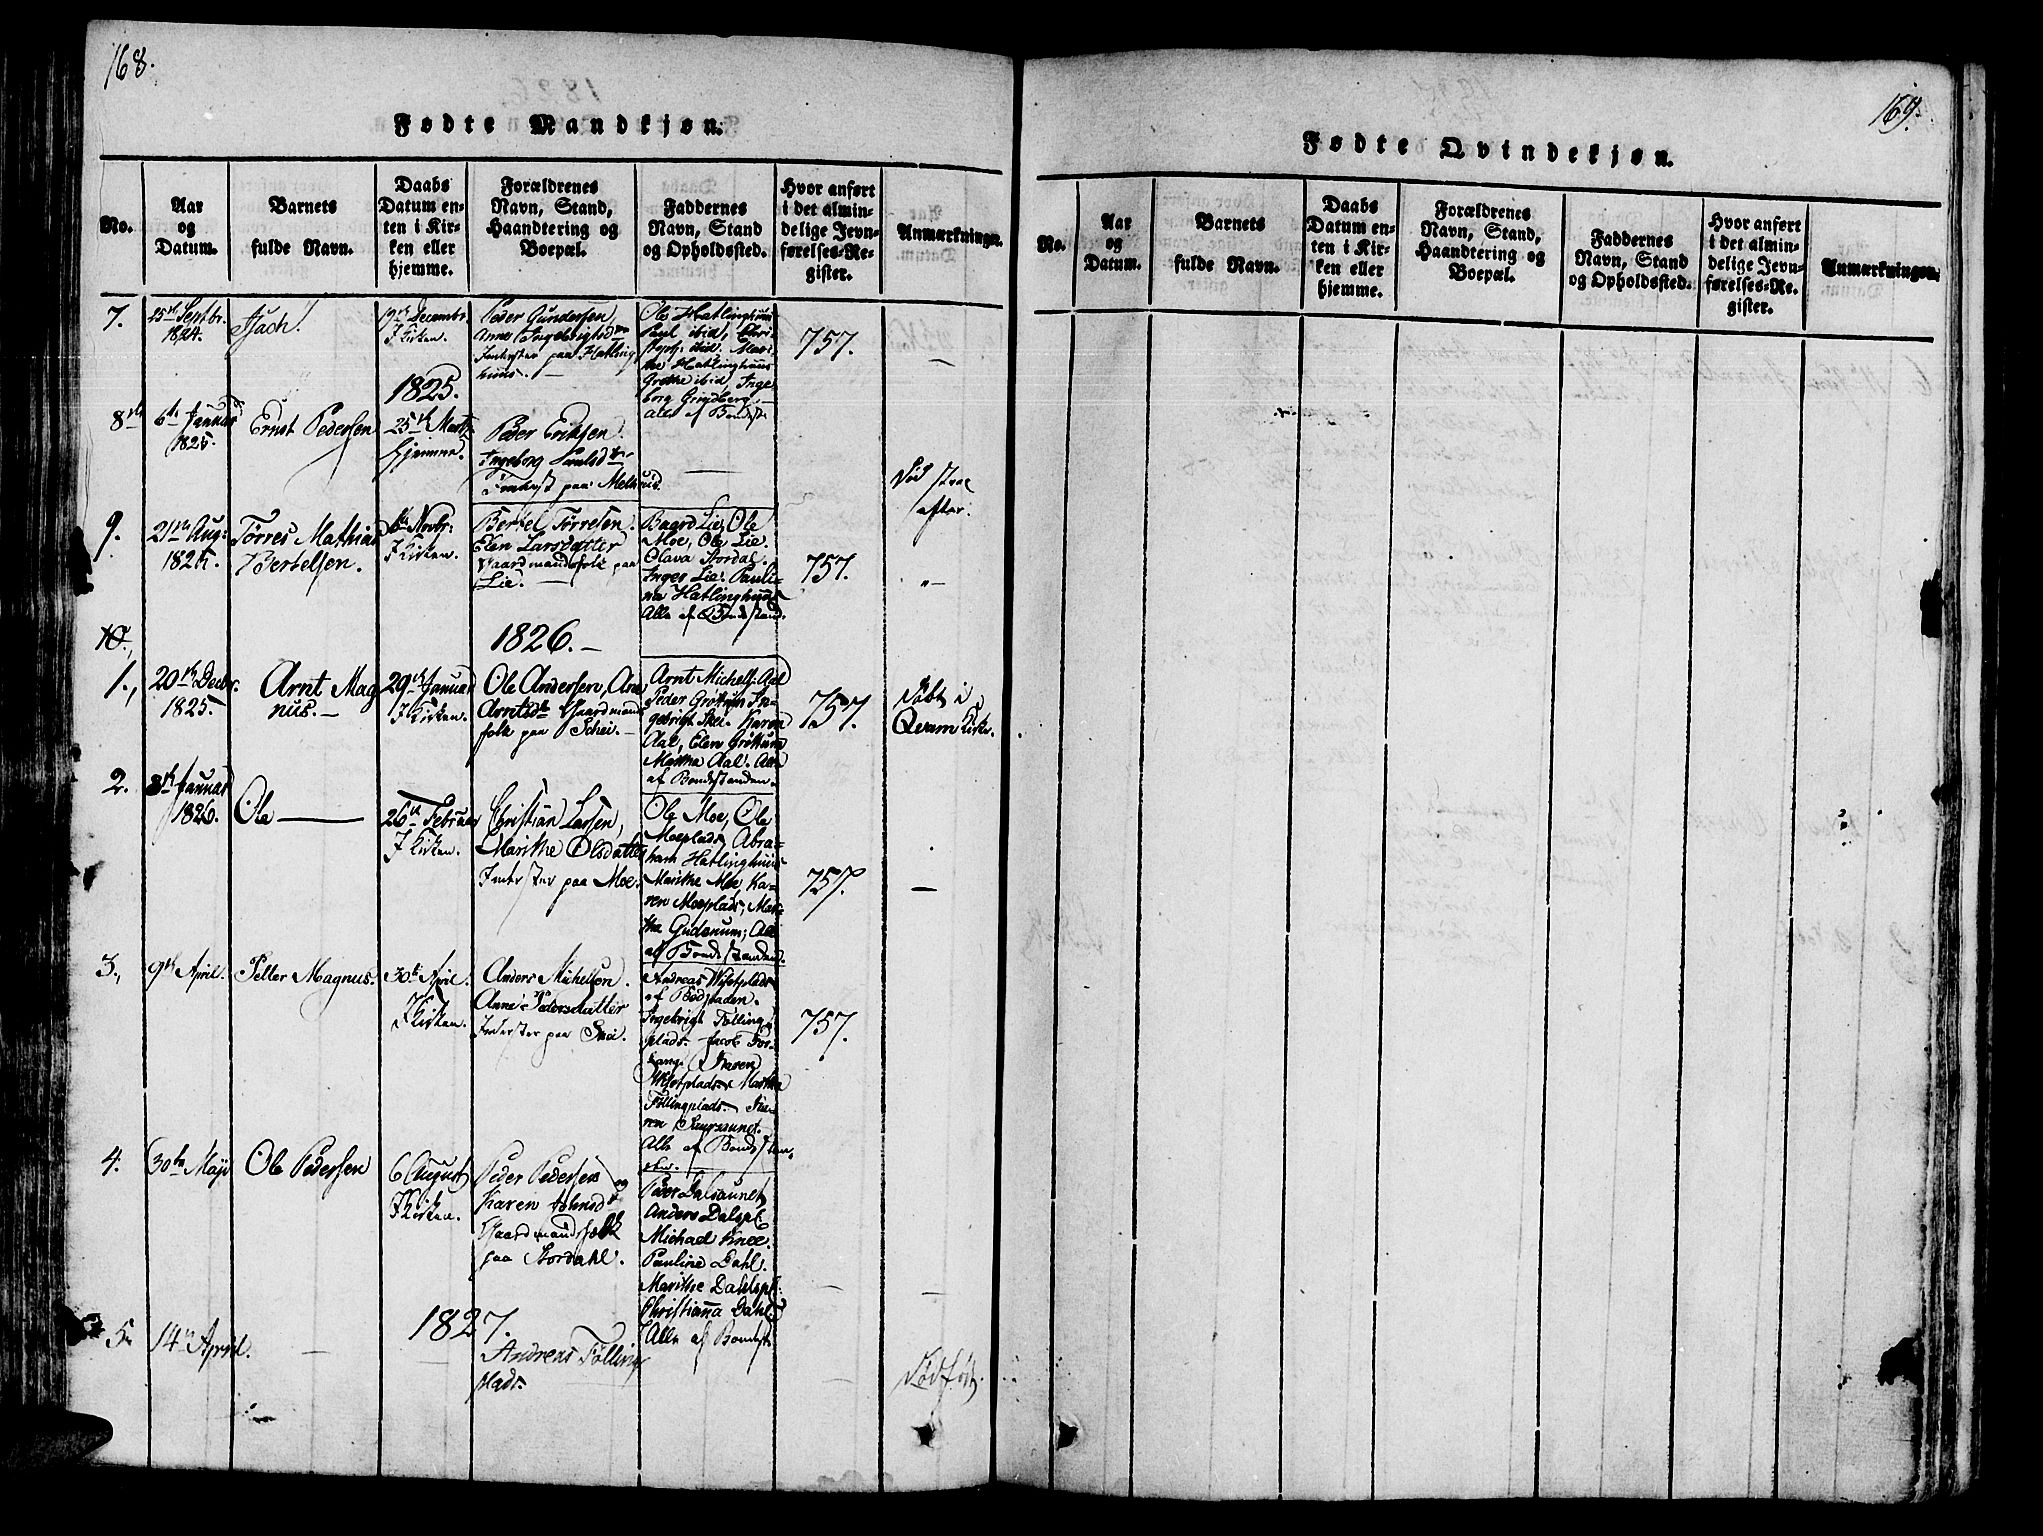 168.
Fødte Mandkjøn.
No.
Aar
og
Datum.
Barnets
fulde Navn.
Daabs
Datum en-
ten i Kir-
ken eller
hjemme.
Forældrenes
Navn, Stand,
Haandtering og
Boepæl.
Faddernes
Navn, Stand
og Opholdssted.
Hvor anført
i det almin-
delige Jevn-
førelses-Re-
gister.
Anmærkninger.
7.
25de Septbr.
1824.
19de Decembr.
I Kirken.
Peder Gundersen,
Anne Ingebrigtsd
Inderster paa Hatling
huus.
Ole Hatlinghuus
Paul ibid, Chri
stoph. ibid. Mari
the Hatlinghuus
Grethe ibid, Inge
borg Grindberg
Alle af Bondest.
757.
1825.
8de
6te Januar
1825.
Ernst Pedersen
25de Marts
hjemme.
Peder Eriksen.
Ingeborg Paulsd
Inderst paa Melhuus.
Død strax
efter.
9.
21de Aug:
1825.
Tørres Mathias
Bertelsen.
Novbr.
I Kirken.
Bertel Tørresen.
Elen Larsdatter
Gaardmandsfolk paa
Lie.
Baard Lie, Ole
Moe, Ole Lie.
Olava Stordal.
Inger Lie. Pauli-
na Hatlinghuus
Alle af Bondestand.
757.
10.
1826.
1.
20de Decbr.
1825.
Arnt Mag
nus.
29de Januar
I Kirken.
Ole Andersen, Ane
Arntsdr Gaardmand
folk paa Schei.
Arnt Michels. Aal
Peder Grøttum In-
gebrigt Skei. Karen
Aal, Elen Grøttum
Marthe Aal. Alle
af Bondestanden.
757.
Døbt i
Qvam Kirke.
2.
8de Januar
1826.
Ole
26de Februar
I Kirken.
Christian Larsen,
Marithe Olsdatter
Inderster paa Moe.
Ole Moe, Ole
Moeplads, Abra-
ham Hatlinghuus
Marithe Moe, Ka-
ren Moeplads, Mar-
the Gudenum; Alle
af Bondestanden.
757.
3.
9de April.
Petter Magnus.
30te April.
I Kirken.
Anders Michelsen.
Anne Pedersdatter
Inderster paa Skei.
Andreas
Ingebrigt Følling
plads. Jacob For-
Karen
Marthe
Føllingplads. Ka-
ren
Alle af Bondestan-
757.
4.
30te Maji
Ole Pedersen
6 August
I Kirken.
Peder Pedersen
og
Karen Johnsdr
Gaardmandsfolk
paa Stordahl.
Peder Dalsaunet
Anders Dalspl.
Michael Knee.
Pauline Dahl.
Marithe Dahlspl.
Christianna Dahl
Alle af Bondest.
1827.
5.
14de April.
Andreas Følling
plads.
Dødfødt.
169.
Fødte Qvindekjøn.
No.
Aar
og
Datum.
Barnets
fulde Navn.
Daabs
Datum en-
ten i Kir-
ken eller
hjemme.
Forældrenes
Navn, Stand,
Haandtering og
Boepæl.
Faddernes
Navn, Stand
og Opholdssted.
Hvor anført
i det almin-
delige Jevn-
førelses-Re-
gister.
Anmærkninger.